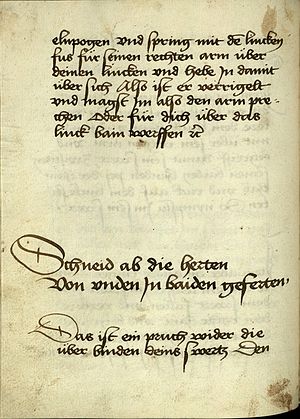 elnpogen vnd spring mit dē lincken
fus für seinen rechten arm über
deinen lincken vnd hebe In damit
über sich Also ist er verrigelt
vnd magst Im also den arm pre-
chen Oder für dich über das
linck bain werffen ꝛc
Schneid ab die herten
Von vnden In baiden geferten
Das ist ein pruch wider die
über binden deins swertz Den